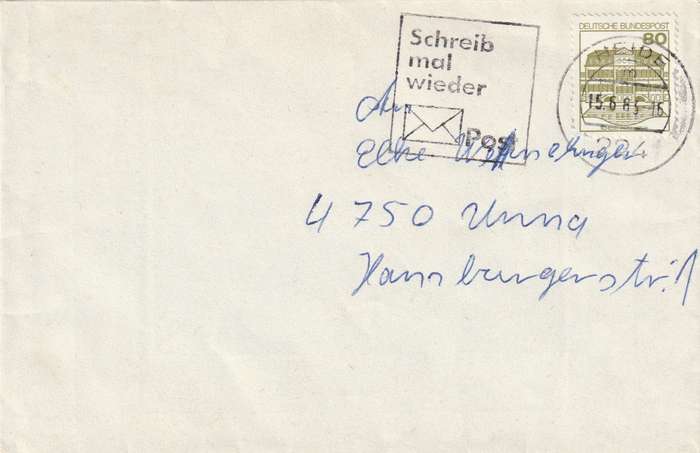 Schreib
mal
wieder
Post
DEUTSCHE BUNDESPOST
80
HEIDE
15.6.8
An
Elke
4750 Unna
Hamburgerstr. 1